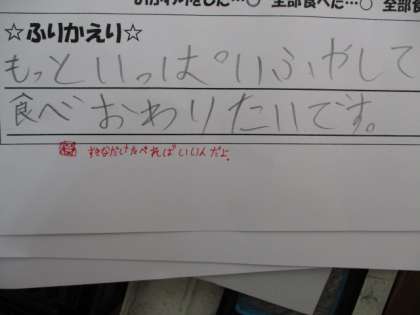 おかわりをした…○ 全部食べた…○ 全部食
☆ふりかえり☆
もっといっぱいふやして
食べおわりたいです。
すきなだけたべればいいんだよ。